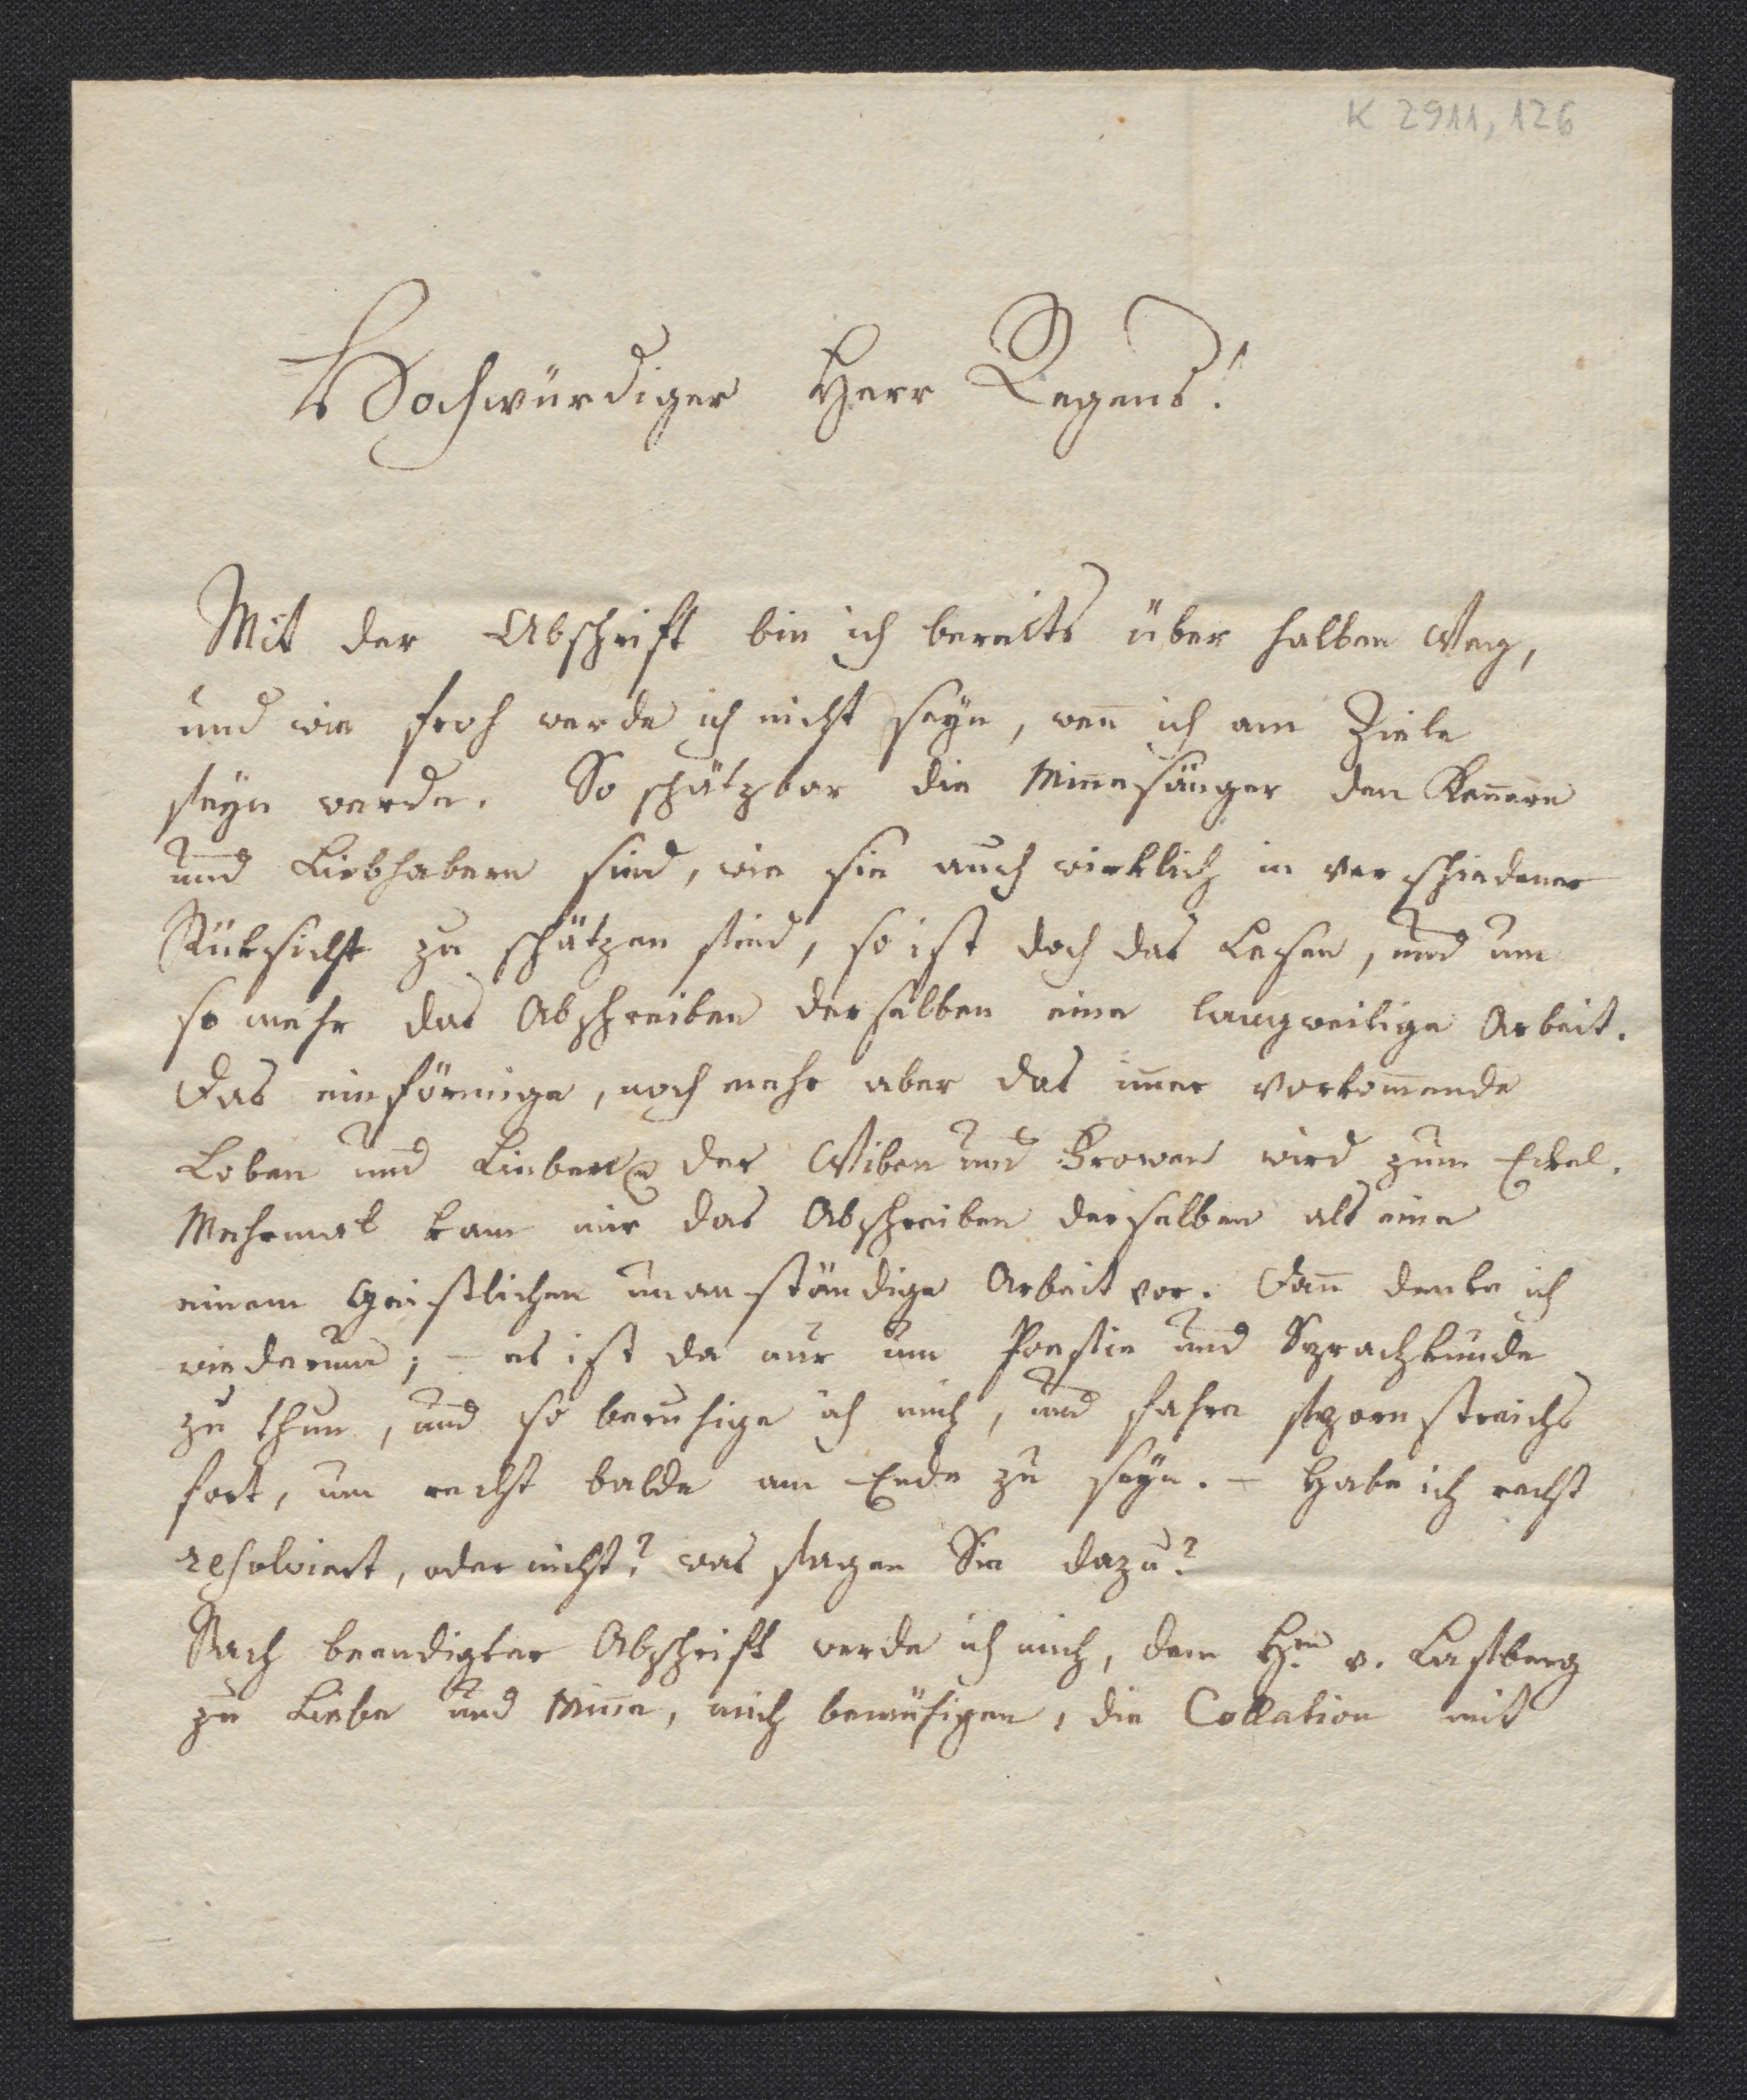 K 2911, 126
Hochwürdiger Herr Regens!
Mit der Abschrift bin ich bereits über halben Weg,
und wie froh werde ich nicht seyn, wen̄ ich am Ziele
seyn werde. So schätzbar die Min̄esänger den Ken̄ern
und Liebhabern sind, wie sie auch wirklich in verschiedener
Rüksicht zu schätzen sind, so ist doch das Lesen, und um
so mehr das Abschreiben derselben eine langweilige Arbeit.
Das einförmige, noch mehr aber das im̄er vorkom̄ende
Loben und Lieben der Wiben und Frowen wird zum Eckel.
Mehrmal kam mir das Abschreiben derselben als eine
einem Geistlichen unanständige Arbeit vor. Dan̄ denke ich
wiederum; – es ist da nur um Poesie und Sprachkunde
zu thun, und so beruhige ich mich, und fahre spornstreichs
fort, um recht balde am Ende zu seyn. – Habe ich recht
resolviert, oder nicht? was sagen Sie dazu?
Nach beendigter Abschrift werde ich mich, dem Hrn v. Lassberg
zu Liebe und Min̄e, mich bemühigen, die Collation mit